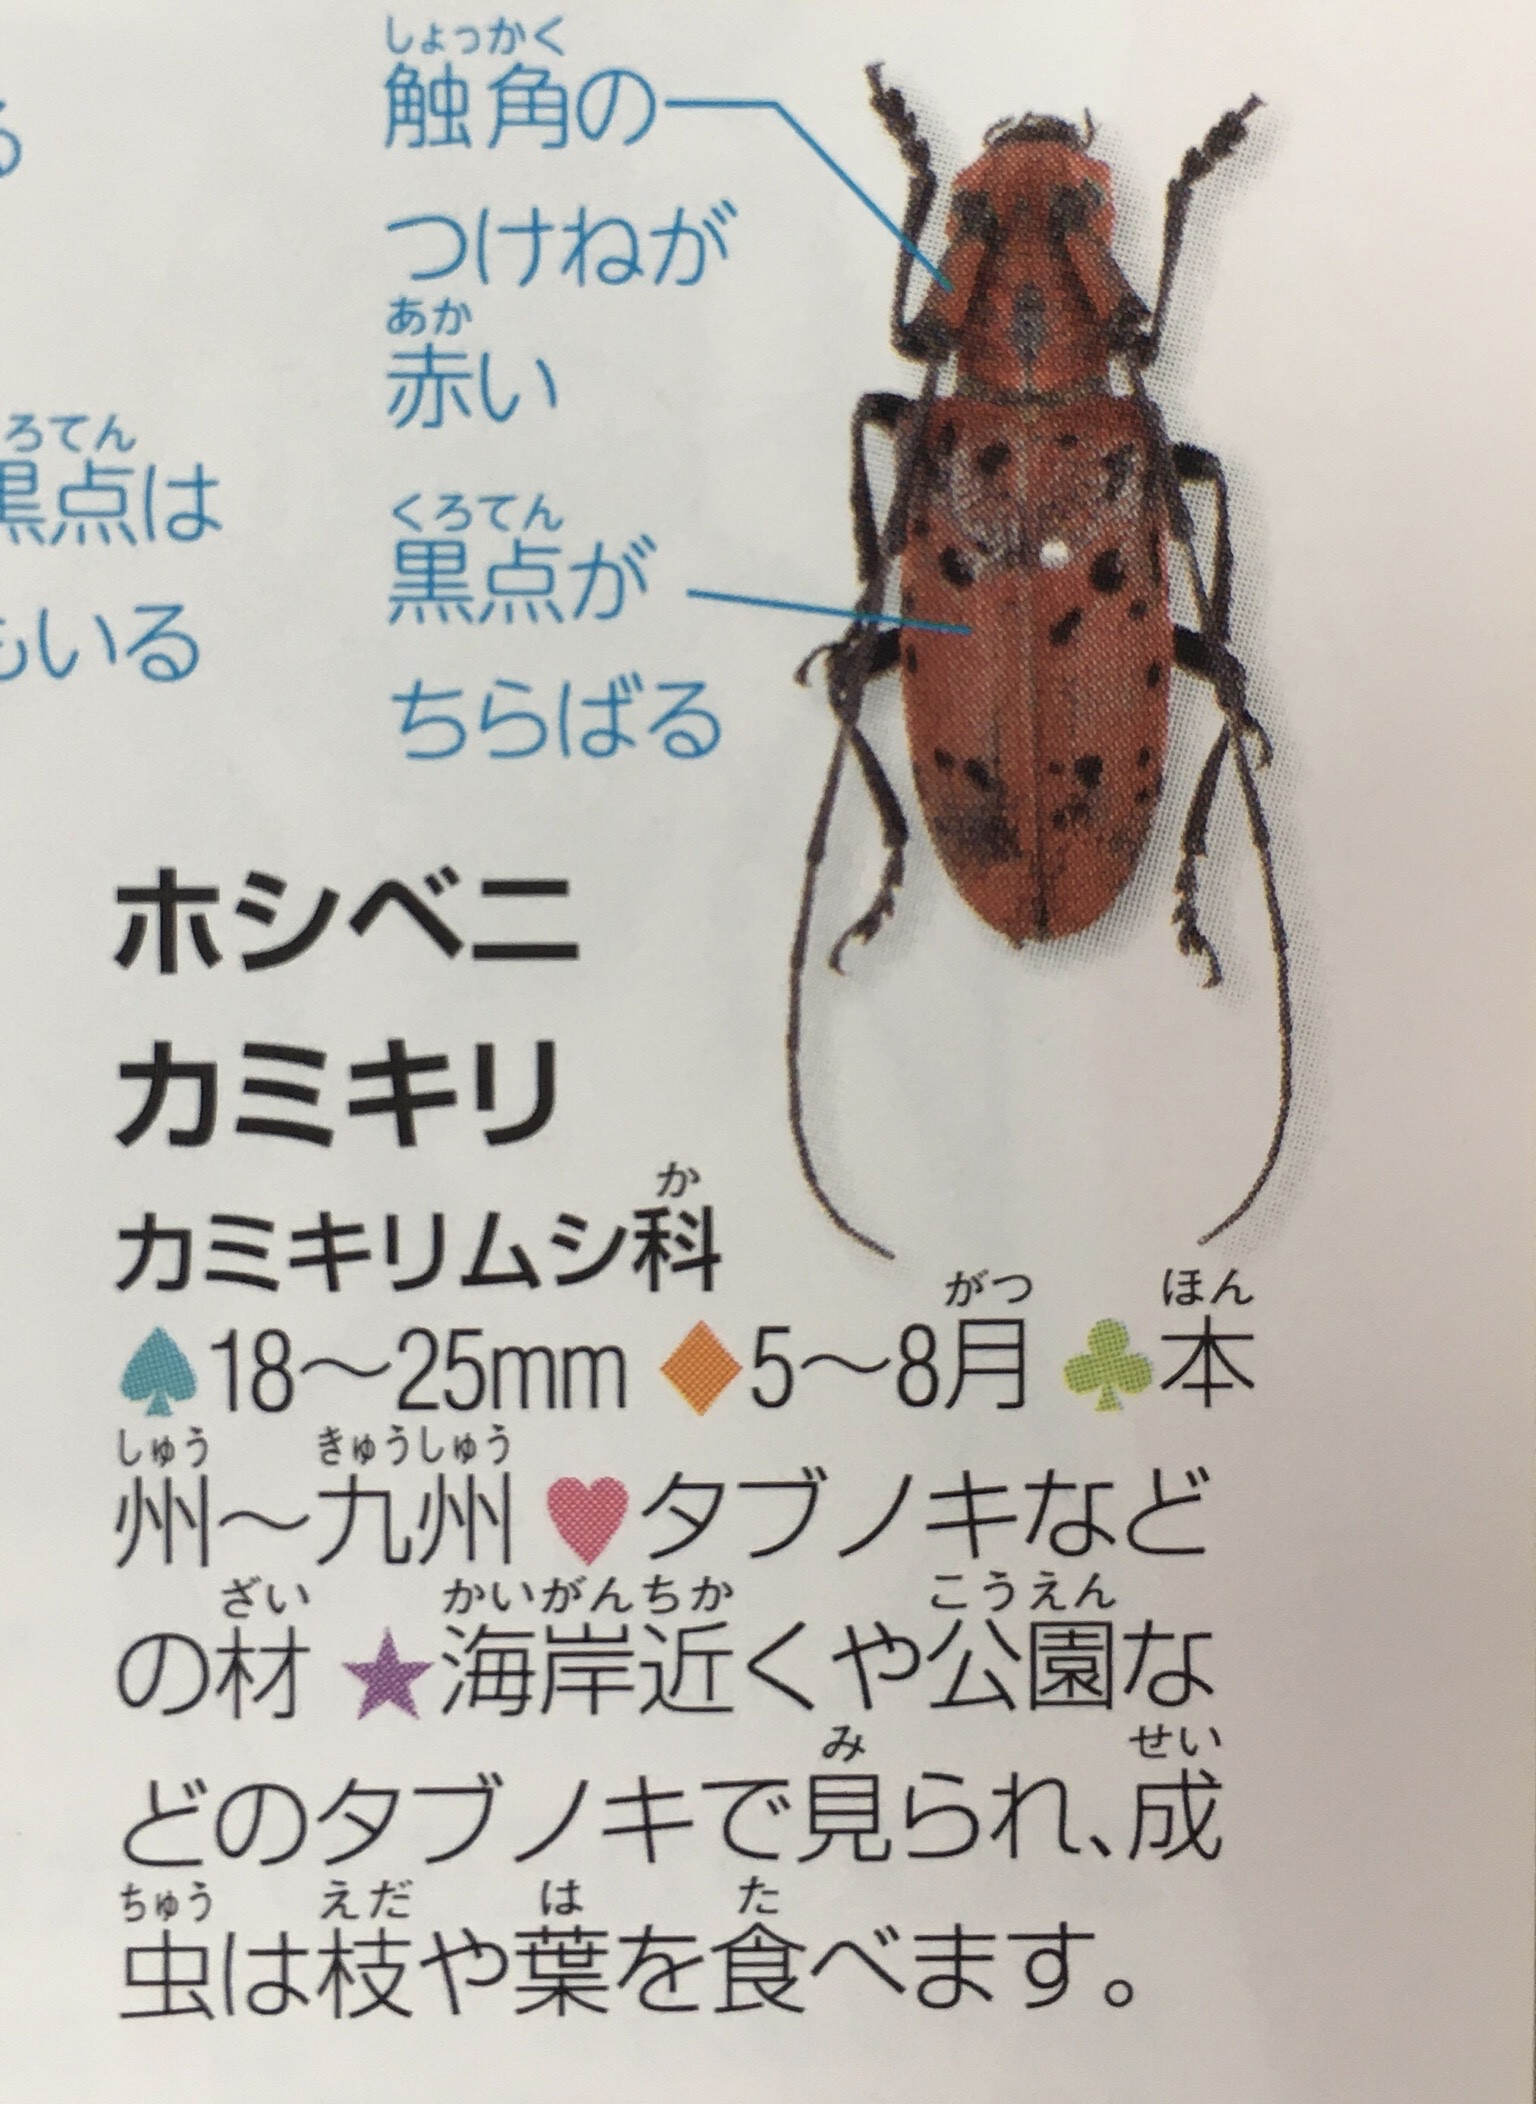 しょっかく
触角の
つけねが
あか
赤い
ろてん
黒点は
もいる
くろてん
黒点が
ちらばる
ホシベニ
カミキリ
か
カミキリムシ科
がつ ほん
♠18〜25mm ♦5〜8月 ♣本
しゅう きゅうしゅう
州〜九州 ♥タブノキなど
ざい かいがんちか こうえん
の材 ★海岸近くや公園な
み せい
どのタブノキで見られ、成
ちゅう えだ は た
虫は枝や葉を食べます。